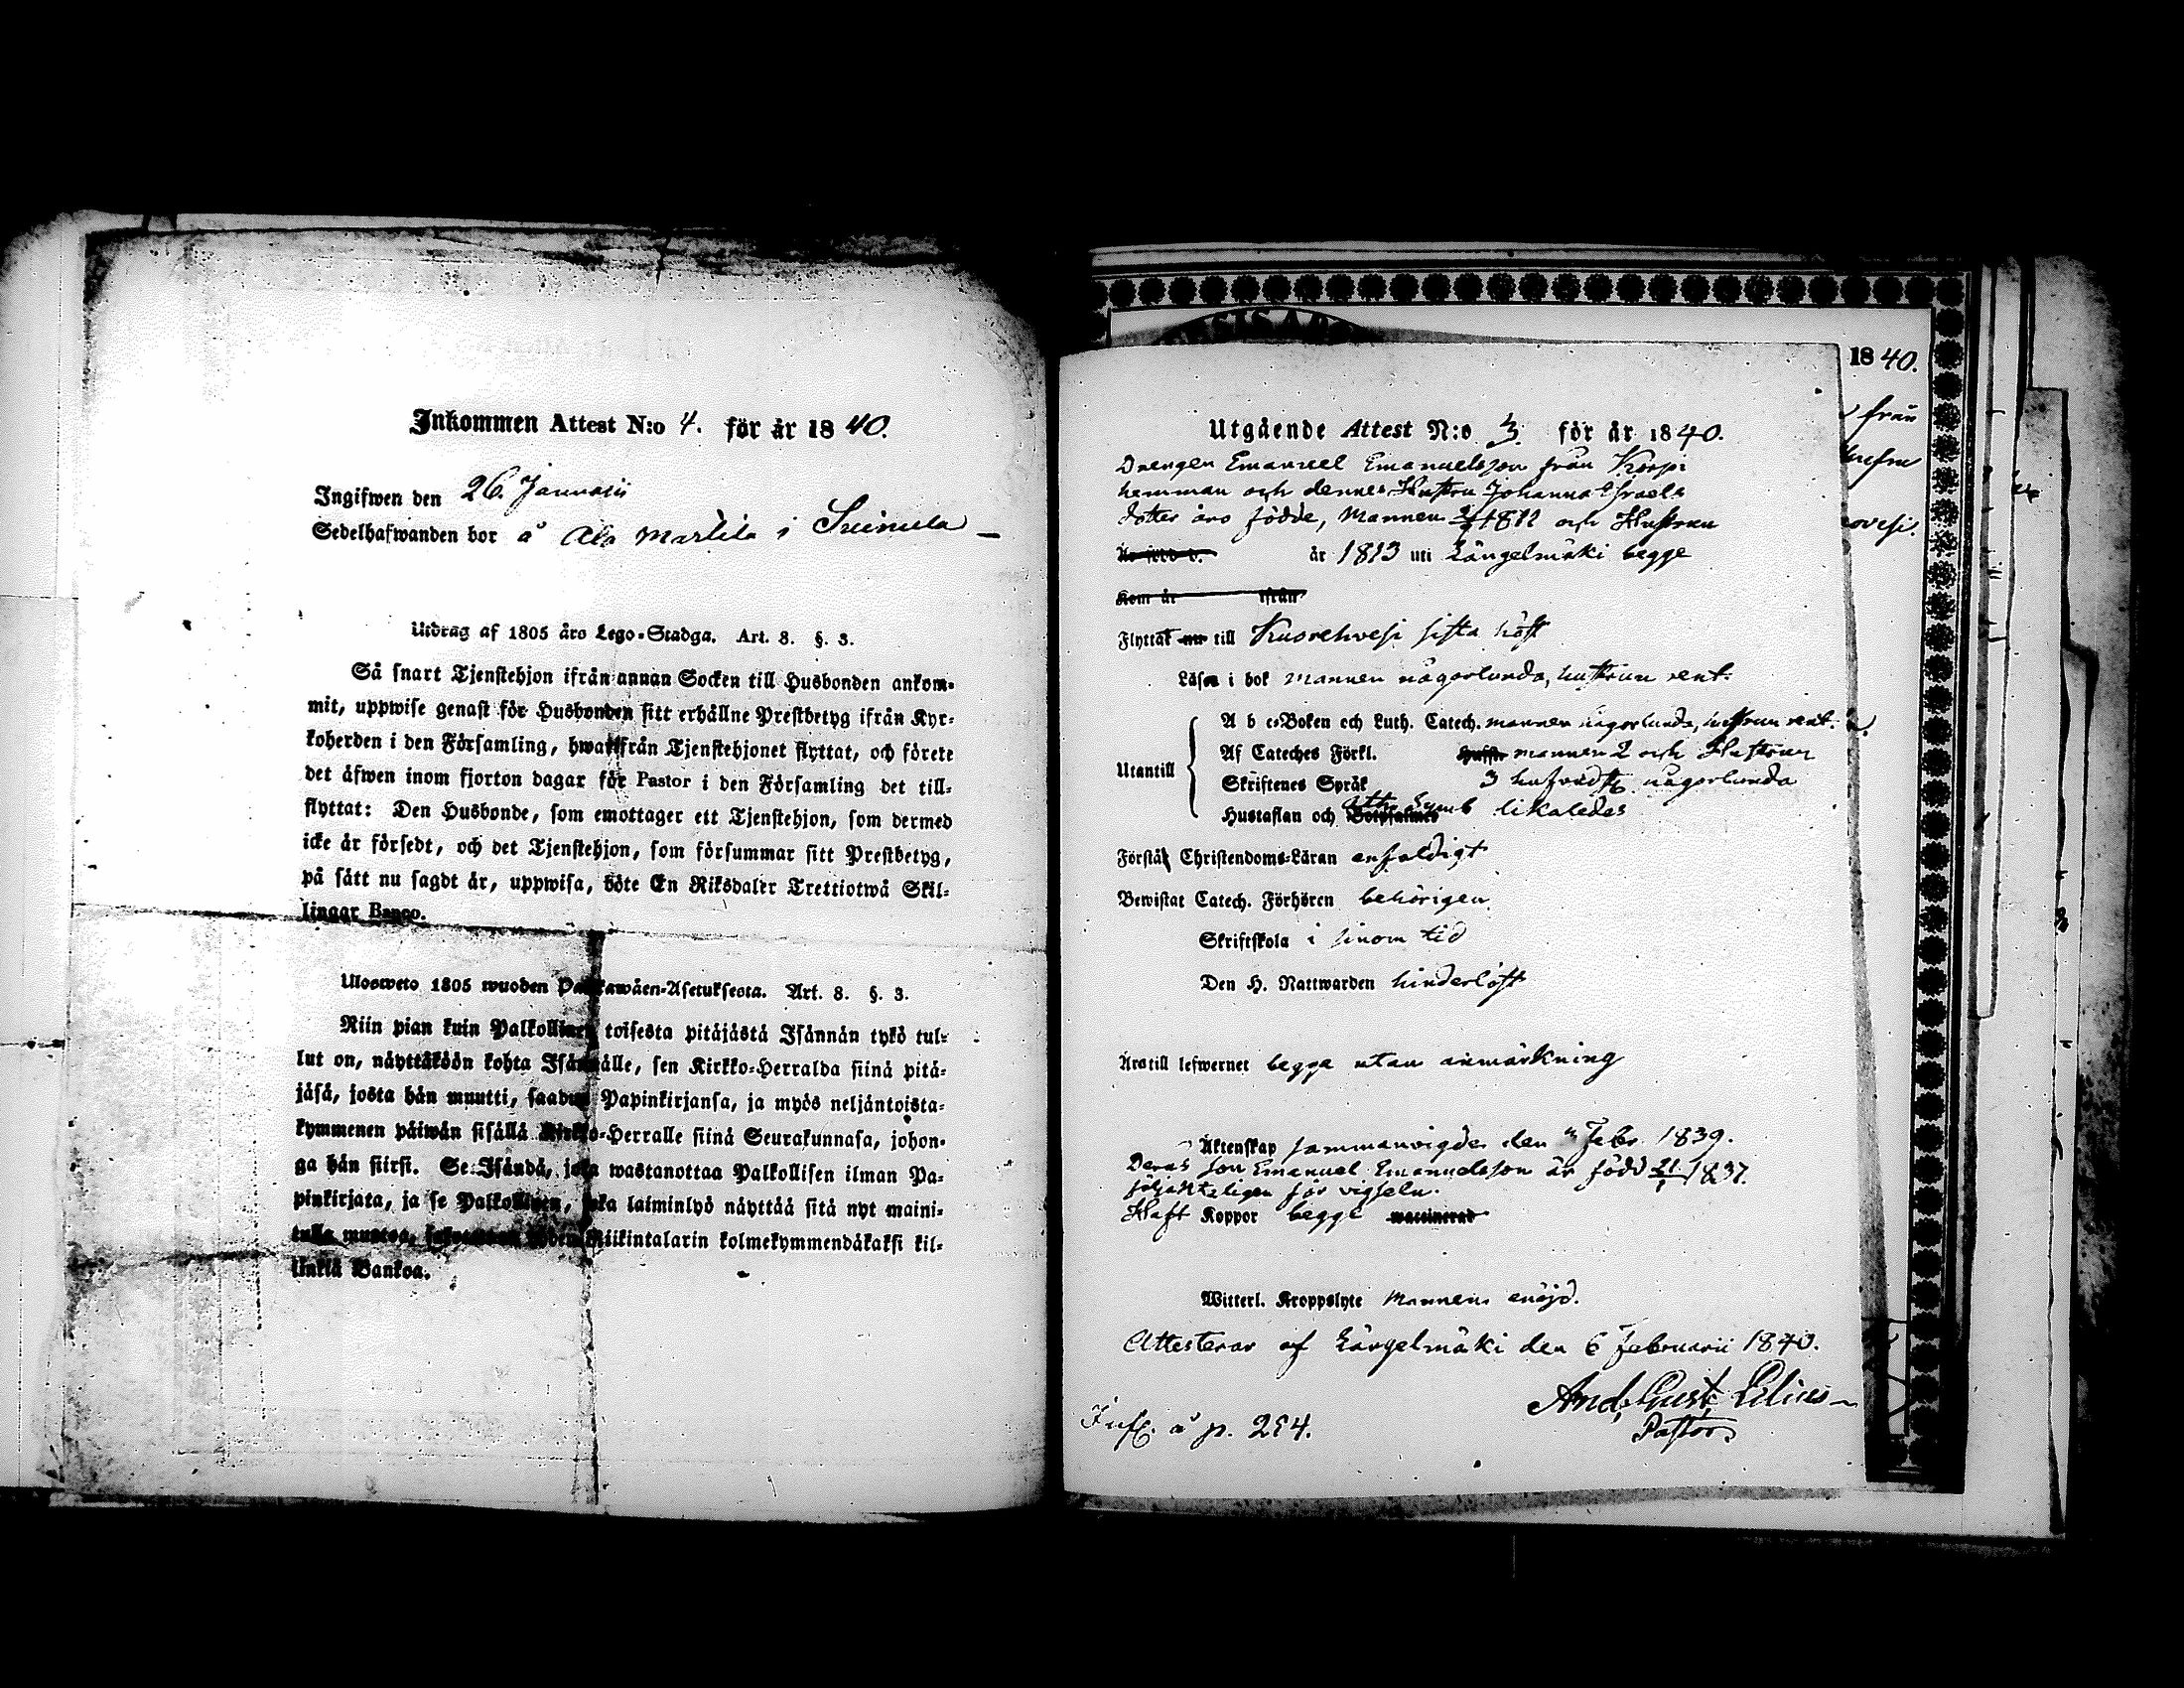 Inkommen Attest N:o 4. för år 1840.
Ingifwen den 26. Januarii
Sedelhafwanden bor å Ala Marttila i Suinula
Utdrag af 1805 åro Lego-Stadga. Art. 8. §. 3.
Så snart Tjenstehjon ifrån annan Socken till Husbonden ankom-
mit, uppwise genast för Husbonden sitt erhållne Prestbetyg ifrån Kyr-
koherden i den Församling, hwarifrån Tjenstehjonet flyttat, och förete
det äfwen inom fjorton dagar för Pastor i den Församling det till-
flyttat: Den Husbonde, som emottager ett Tjenstehjon, som dermed
icke är försedt, och det Tjenstehjon, som försummar sitt Prestbetyg,
på sätt nu sagdt är, uppwisa, böte En Riksdaler Trettiotwå Skil-
lingar Banco.
Ulosweto 1805 wuoden Palkkawäen-Asetuksesta. Art. 8. §. 3.
Niin pian kuin Palkollinen toisesta pitäjästä Isännän tykö tul-
lut on, näyttäköön kohta Isännälle, sen Kirkko-Herralda siinä pitä-
jäsä, josta hän muutti, saadun Papinkirjansa, ja myös neljäntoista-
kymmenen päiwän sisällä Kirkko-Herralle siinä Seurakunnasa, johon-
ga hän siirsi. Se Isändä, joka wastanottaa Palkollisen ilman Pa-
pinkirjata, ja se Palkollinen, joka laiminlyö näyttää sitä nyt maini-
tulla muotoa, Riikintalarin kolmekymmendäkaksi kil-
linkiä Bankoa.
Utgående Attest N:o 3. för år 1840.
Drengen Emanuel Emanuelsson från Korpi
hemman och dennes Hustru Johanna Esraels
dotter äro födde, Mannen 1811 och Hustrun
Är född d. år 1813 uti Längelmäki begge
Kom år ifrån
Flyttat nu till Kuorehvesi sista höst
Läsa i bok mannen någorlunda, hustrun rent.
A b c-Boken och Luth. Catech. mannen någorlunda, hustrun rent.
Utantill
Af Cateches Förkl. mannen 2 och Hustrun
Skriftenes Språk 3 hufvudst. någorlunda
Hustaflan och Ath. Symb likaledes
Förstå Christendoms-Läran enfaldigt
Bewistat Catech. Förhören behörigen
Skriftskola i sinom tid
Den H. Nattwarden hinderlöst
Äro till lefwernet begge utan anmärkning
Äktenskap sammanvigde den Febr. 1839.
Deras son Emanuel Emanuelsson är född 21/1 1837.
följakteligen för vigseln.
Haft Koppor begge waccinerad
Witterl. Kroppslyte Mannen enöjd.
Attesterar af Längelmäki den 6 Februarii 1840.
And. Gust.
Pastor
Infl. å p. 294.
1840.
från